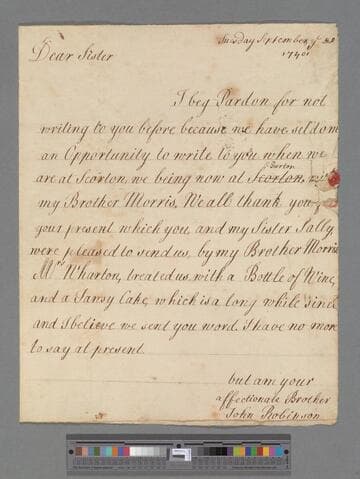 Tuesday September ye
1740
Dear Sister
I beg Pardon for not
writing to you before because we have seldom
an Opportunity to write to you when we
Barton
are at Scorton, we being now at Scorton, wth
my Brother Morris, We all thank you
your present which you and my Sister Sally
were pleased to send us, by my Brother Morris
Mrs Wharton, treated us with a Bottle of Wine,
and a Tansy Cake, which is a long while since
and I believe we sent you word I have no more
to say at present.
but am your
affectionate Brother
John Robinson